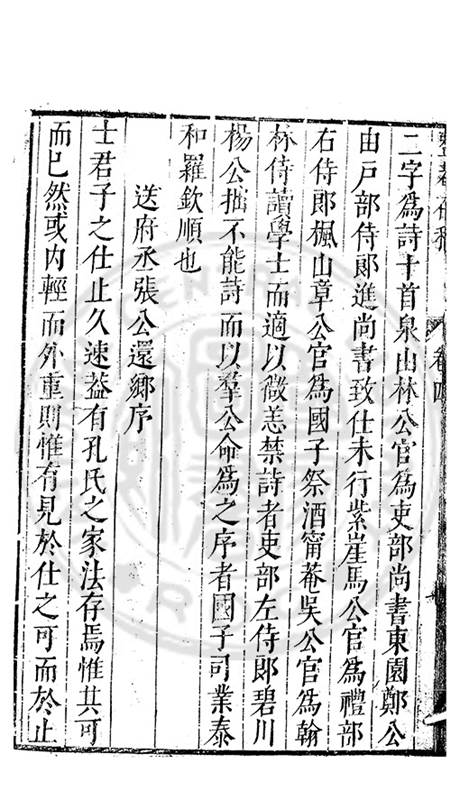 二字為詩十首泉山林公官為吏部尚書東園鄭公
由戶部侍郎進尚書致仕未行紫崖馬公官為禮部
右侍郎楓山章公官為國子祭酒甯菴吳公官為翰
林侍讀學士而適以微恙禁詩者吏部左侍郎碧川
楊公拙不能詩而以羣公命為之序者國子司業泰
和羅欽順也
送府丞張公還鄉序
士君子之仕止久速葢有孔氏之家法存焉惟其可
而已然或內輕而外重則惟有見於仕之可而於止
卷四